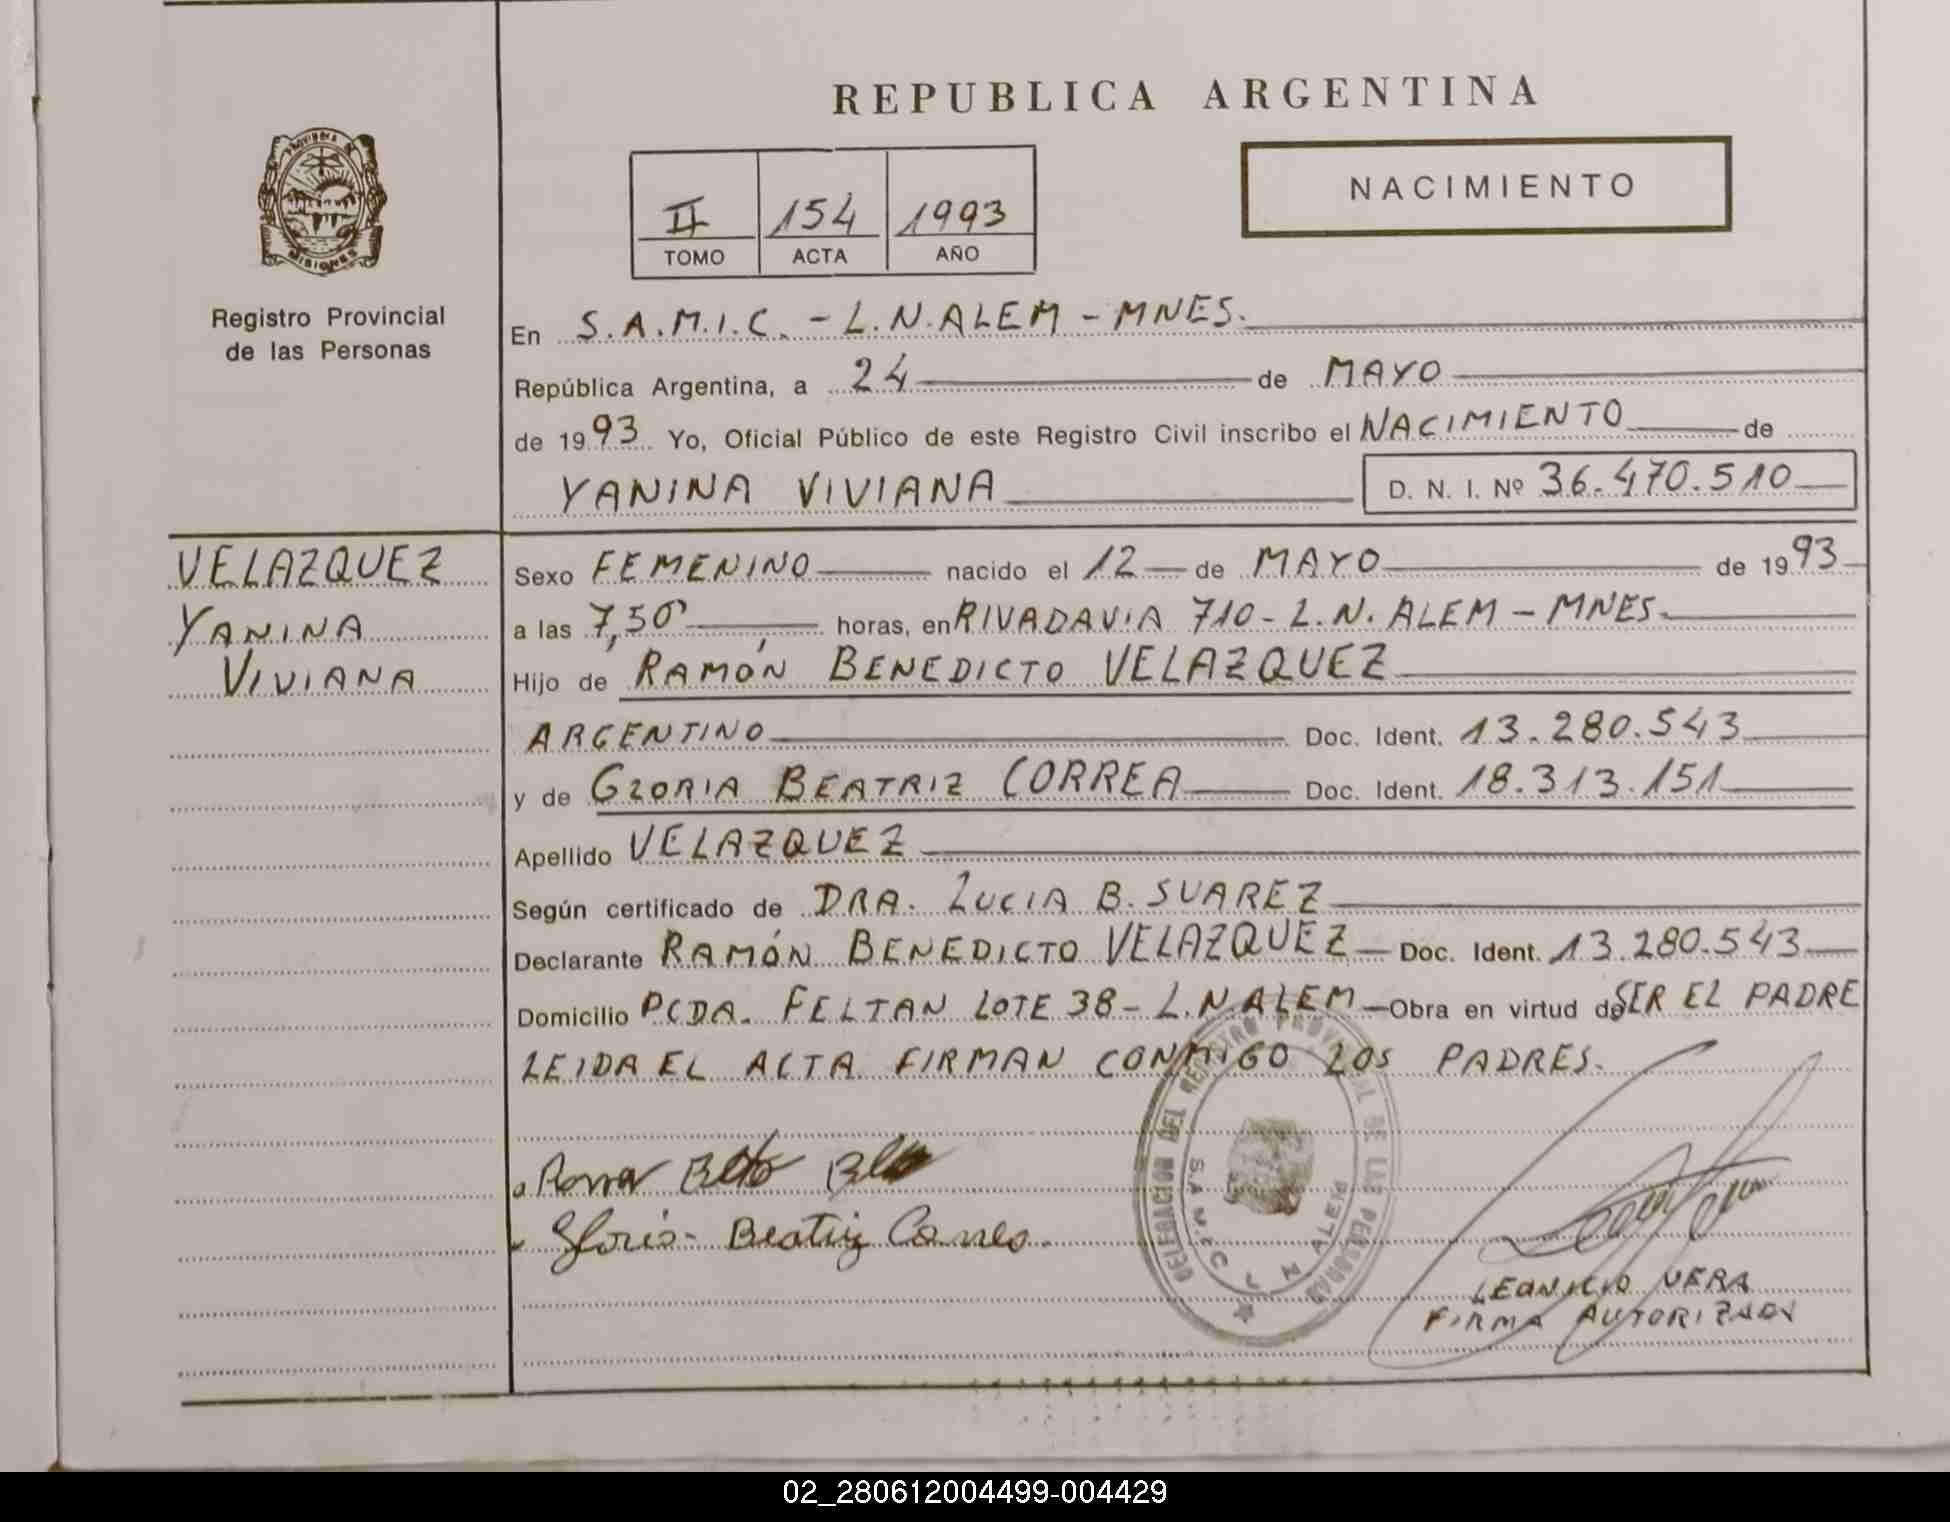 REPUBLICA ARGENTINA
PROVINCIA DE
MISIONES
Registro Provincial
de las Personas
II 154 1993
TOMO ACTA AÑO
NACIMIENTO
En S.A.M.I.C. - L.N.ALEM - MNES.
República Argentina, a 24 de MAYO
de 1993 Yo, Oficial Público de este Registro Civil inscribo el NACIMIENTO de
YANINA VIVIANA D. N. I. Nº 36.470.510
VELAZQUEZ
YANINA
VIVIANA
Sexo FEMENINO nacido el 12 de MAYO de 1993
a las 7,50 horas, en RIVADAVIA 710 - L.N. ALEM - MNES.
Hijo de RAMÓN BENEDICTO VELAZQUEZ
ARGENTINO Doc. Ident. 13.280.543
y de GLORIA BEATRIZ CORREA Doc. Ident. 18.313.151
Apellido VELAZQUEZ
Según certificado de DRA. LUCIA B. SUAREZ
Declarante RAMÓN BENEDICTO VELAZQUEZ Doc. Ident. 13.280.543
Domicilio PCDA. FELTAN LOTE 38 - L.N.ALEM Obra en virtud de SER EL PADRE
LEIDA EL ACTA FIRMAN CONMIGO LOS PADRES.
Gloria Beatriz Correa.
DELEGACION DEL REGISTRO PROVINCIAL DE LAS PERSONAS
S.A.M.I.C. L. N. ALEM
LEONICIO VERA
FIRMA AUTORIZADA
02_280612004499-004429